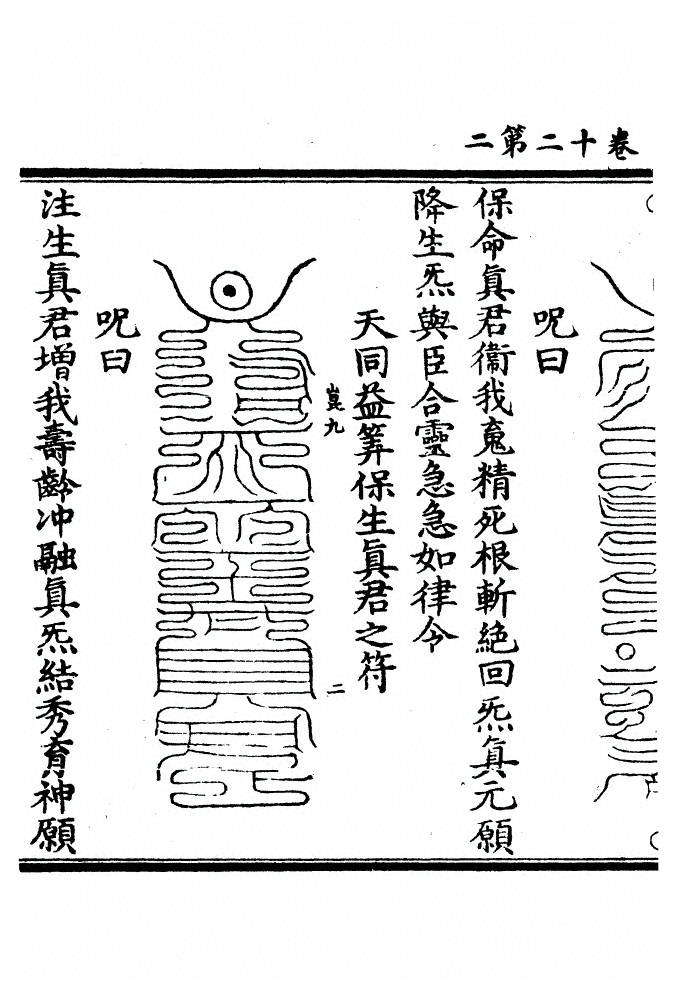 卷十二第二
呪曰
保命眞君衞我䰟精死根斬絶回炁眞元願
降生炁與臣合靈急急如律令
天同益筭保生眞君之符
崑九
二
呪曰
注生眞君增我壽齡冲融眞炁結秀育神願